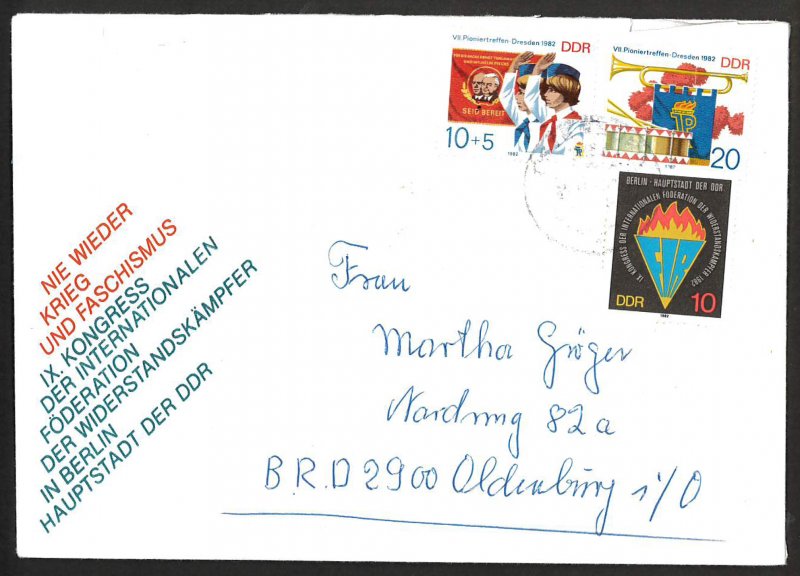 VII. Pioniertreffen-Dresden 1982
DDR
SEID BEREIT
10+5
1982
VII. Pioniertreffen-Dresden 1982
DDR
20
1982
BERLIN · HAUPTSTADT DER DDR
IX. KONGRESS DER INTERNATIONALEN FÖDERATION DER WIDERSTANDSKÄMPFER 1982
FIR
DDR
10
1982
NIE WIEDER
KRIEG
UND FASCHISMUS
IX. KONGRESS
DER INTERNATIONALEN
FÖDERATION
DER WIDERSTANDSKÄMPFER
IN BERLIN
HAUPTSTADT DER DDR
Frau
Martha Gröger
82a
B.R.D 2900 Oldenburg i/O